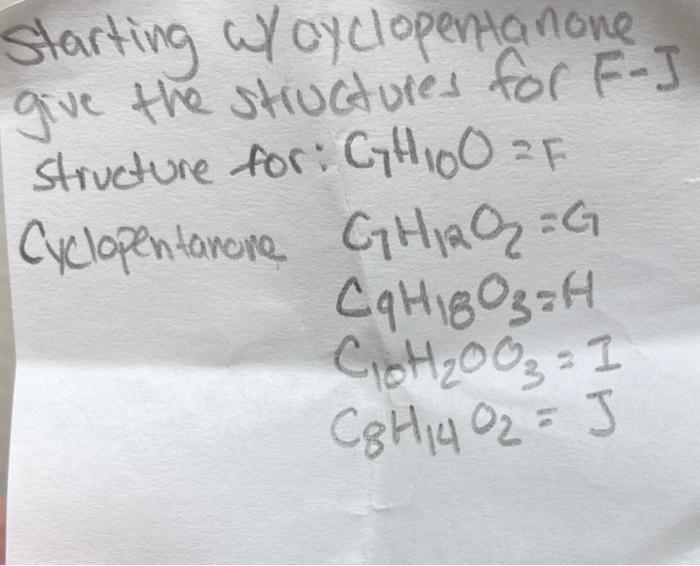 Starting w/ cyclopentanone
give the structures for F-J
structure for: C7H10O = F
Cyclopentanone C7H12O2 = G
C9H18O3 = H
C10H20O3 = I
C8H14O2 = J